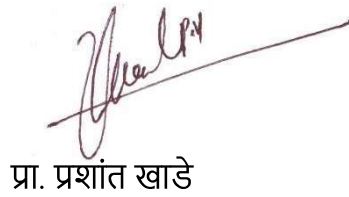 प्रा. प्रशांत खाडे